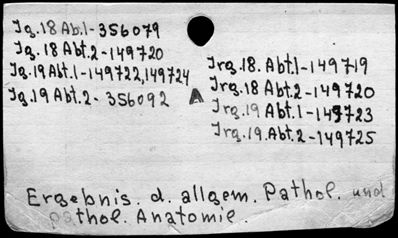 Jg.18 Ab.1-356079
Jg.18 Abt.2-149720
Jg.19 Abt.1-149722,149724
Jg.19 Abt.2-356092
A
Jrg.18. Abt.1-149719
Jrg.18 Abt.2-149720
Jrg.19 Abt.1-149723
Jrg.19. Abt.2-149725
Ergebnis. d. allgem. Pathol. und
pathol. Anatomie.